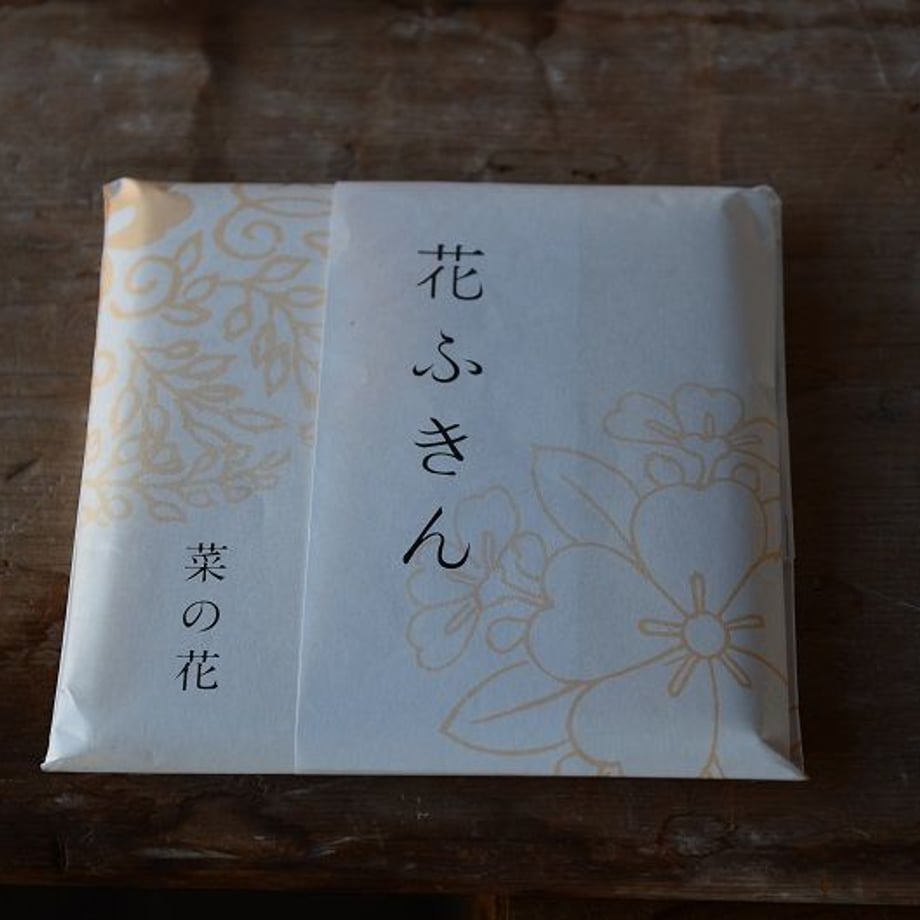 花ふきん
菜の花